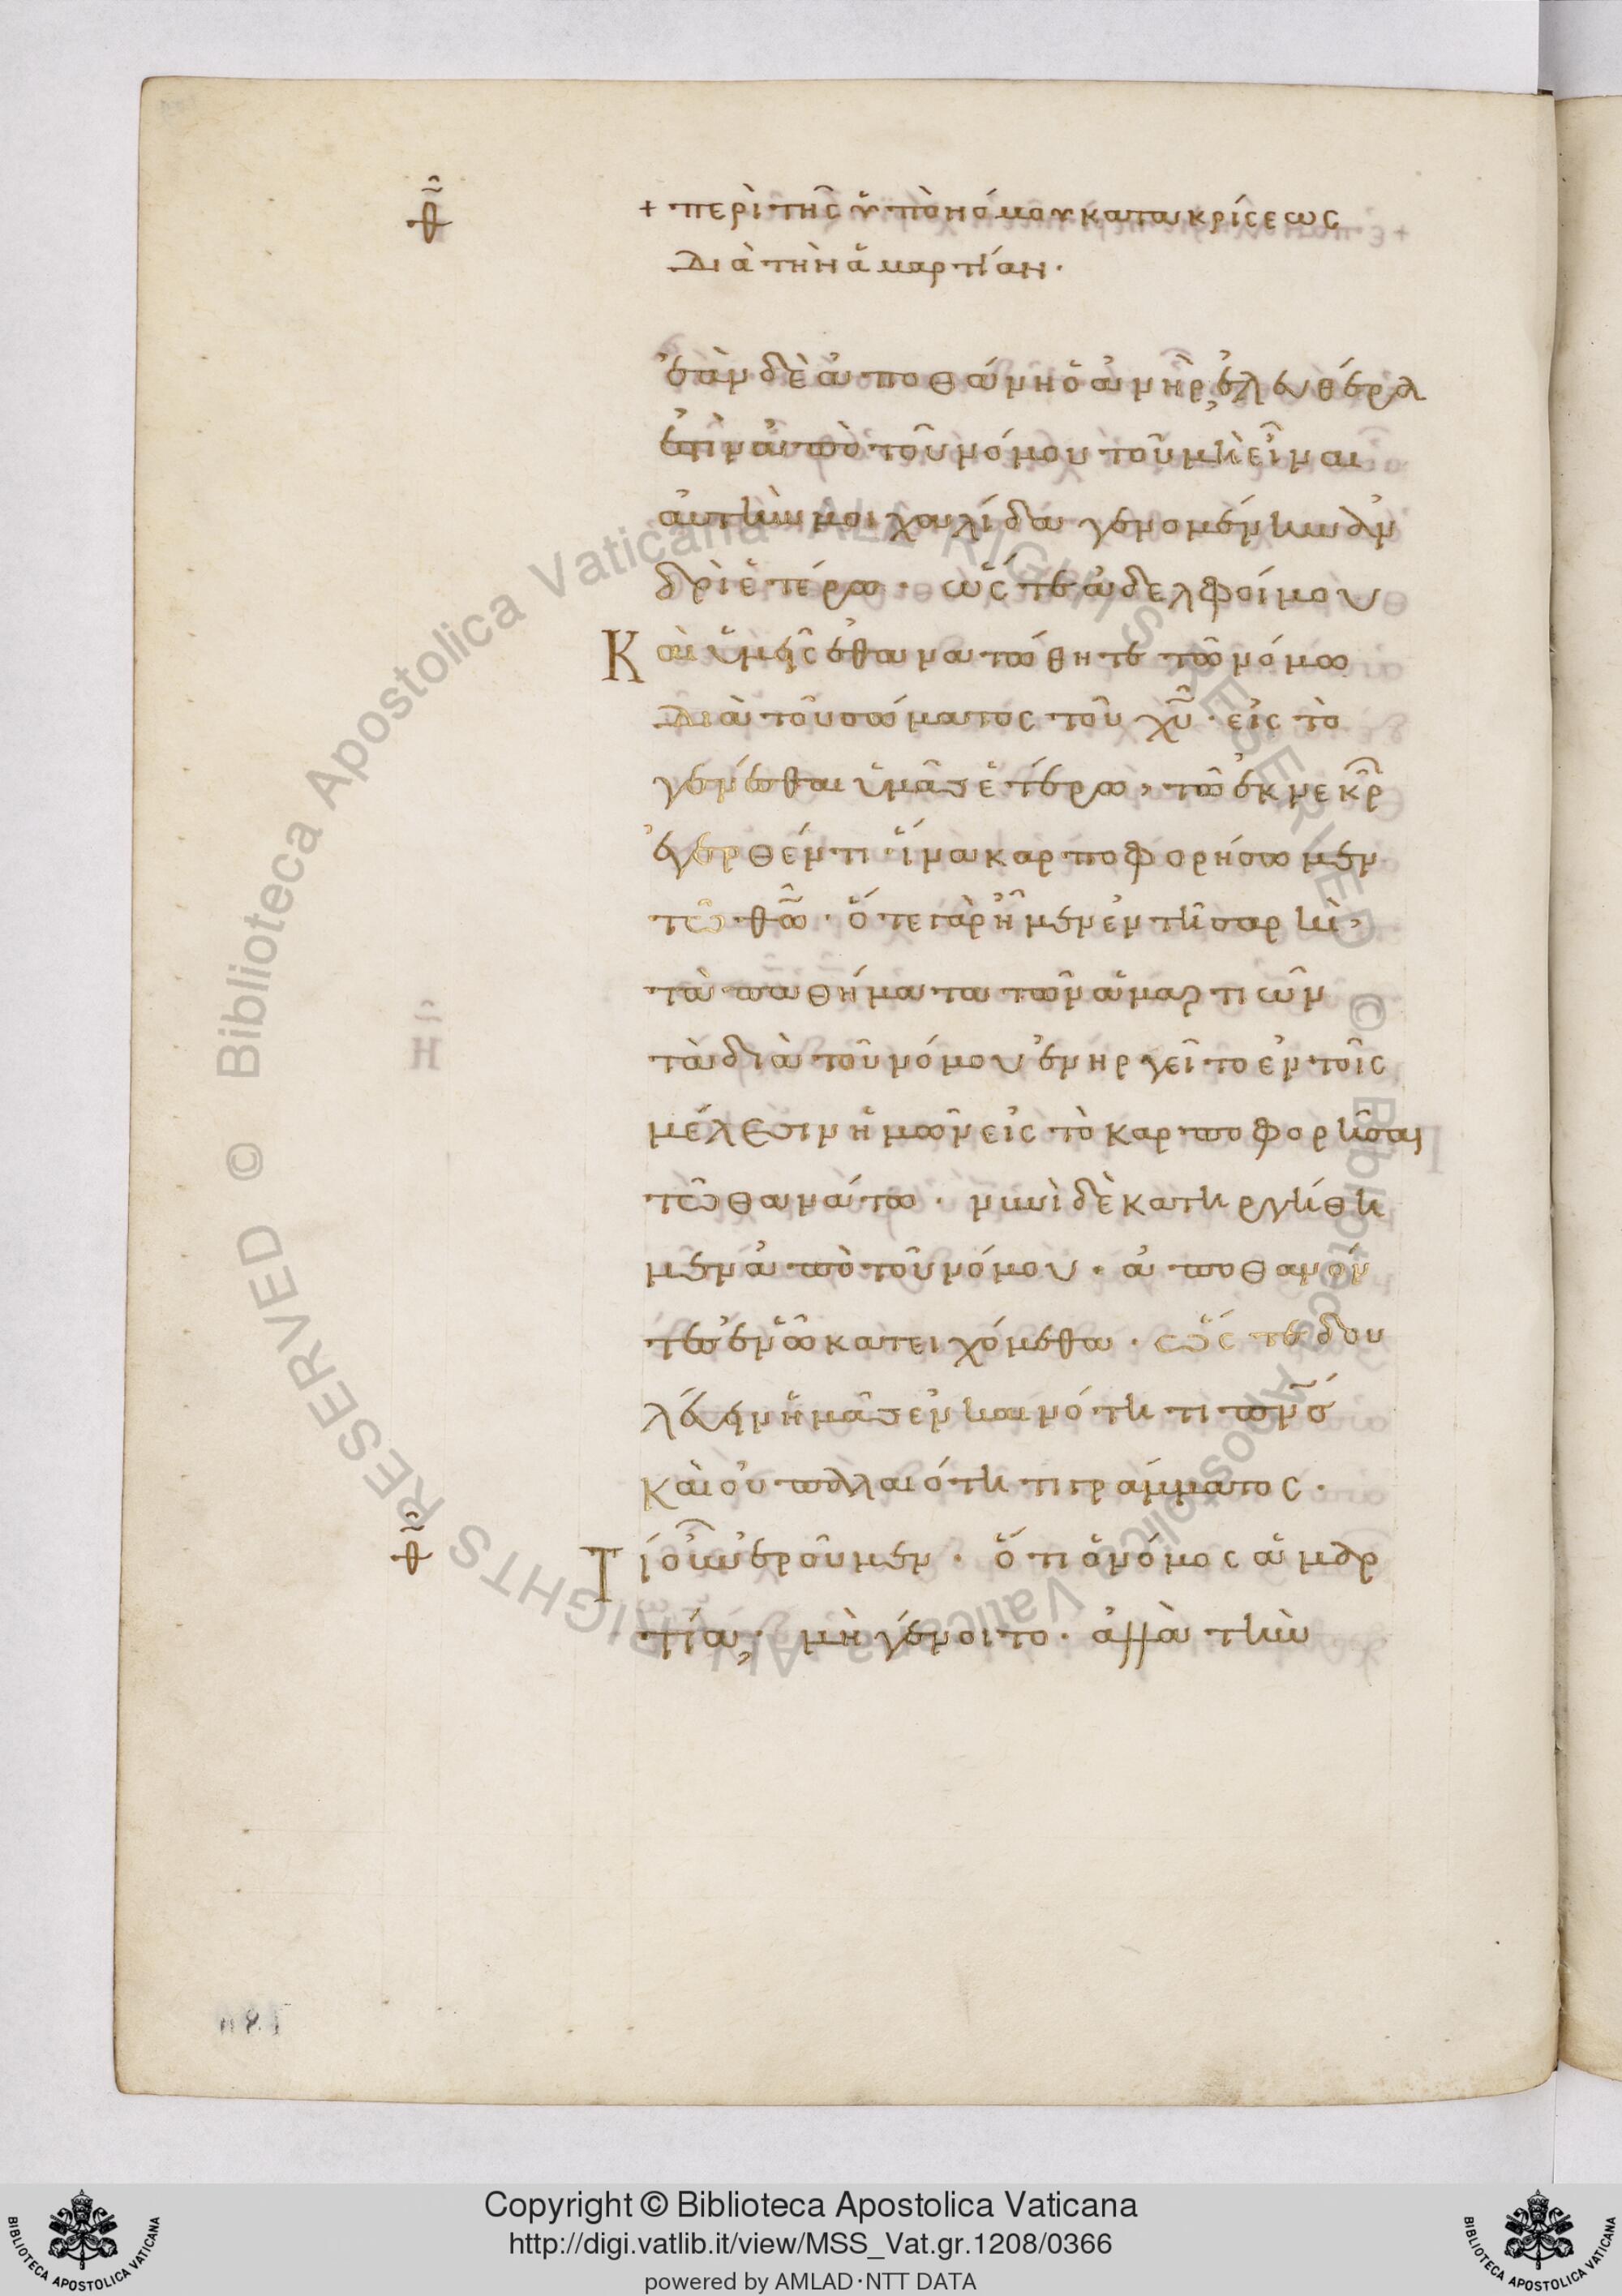 θ
+ περὶ τῆς ὑπὸ νόμου κατακρίσεως
διὰ τὴν ἁμαρτίαν·
ἐὰν δὲ ἀποθάνη ὁ ἀνὴρ, ἐλευθέρα
ἐστὶν ἀπὸ τοῦ νόμου τοῦ μὴ εἶναι
αὐτὴν μοιχαλίδα γενομένην ἀν
δρὶ ἑτέρω· ὥστε ἀδελφοί μου
Καὶ ὑμεῖς ἐθανατώθητε τῶ νόμω
διὰ τοῦ σώματος τοῦ χυ· εἰς τὸ
γενέσθαι ὑμᾶς ἑτέρω, τῶ ἐκ νεκρ
ἐγερθέντι ἵνα καρποφορήσωμεν
τῶ θω· ὅτε γὰρ ἦμεν ἐν τῆ σαρκὶ,
τὰ παθήματα τῶν ἁμαρτιῶν
τὰ διὰ τοῦ νόμου ἐνηργεῖτο ἐν τοῖς
μέλεσιν ἡμῶν εἰς τὸ καρποφορῆσαι
τῶ θανάτω· νυνὶ δὲ κατηργήθη
μεν ἀπὸ τοῦ νόμου· ἀποθανόν
τες ἐν ὧ κατειχόμεθα· ὥστε δου
λεύειν ἡμᾶς ἐν καινότητι πνσ
καὶ οὐ παλαιότητι γράμματος·
θ
Τί οὖν ἐροῦμεν· ὅτι ὁ νόμος ἁμαρ
τία, μὴ γένοιτο· ἀλλὰ τὴν
Copyright © Biblioteca Apostolica Vaticana
http://digi.vatlib.it/view/MSS_Vat.gr.1208/0366
powered by AMLAD·NTT DATA
BIBLIOTECA APOSTOLICA VATICANA
BIBLIOTECA APOSTOLICA VATICANA
© Biblioteca Apostolica Vaticana ALL RIGHTS RESERVED
© Biblioteca Apostolica Vaticana ALL RIGHTS RESERVED